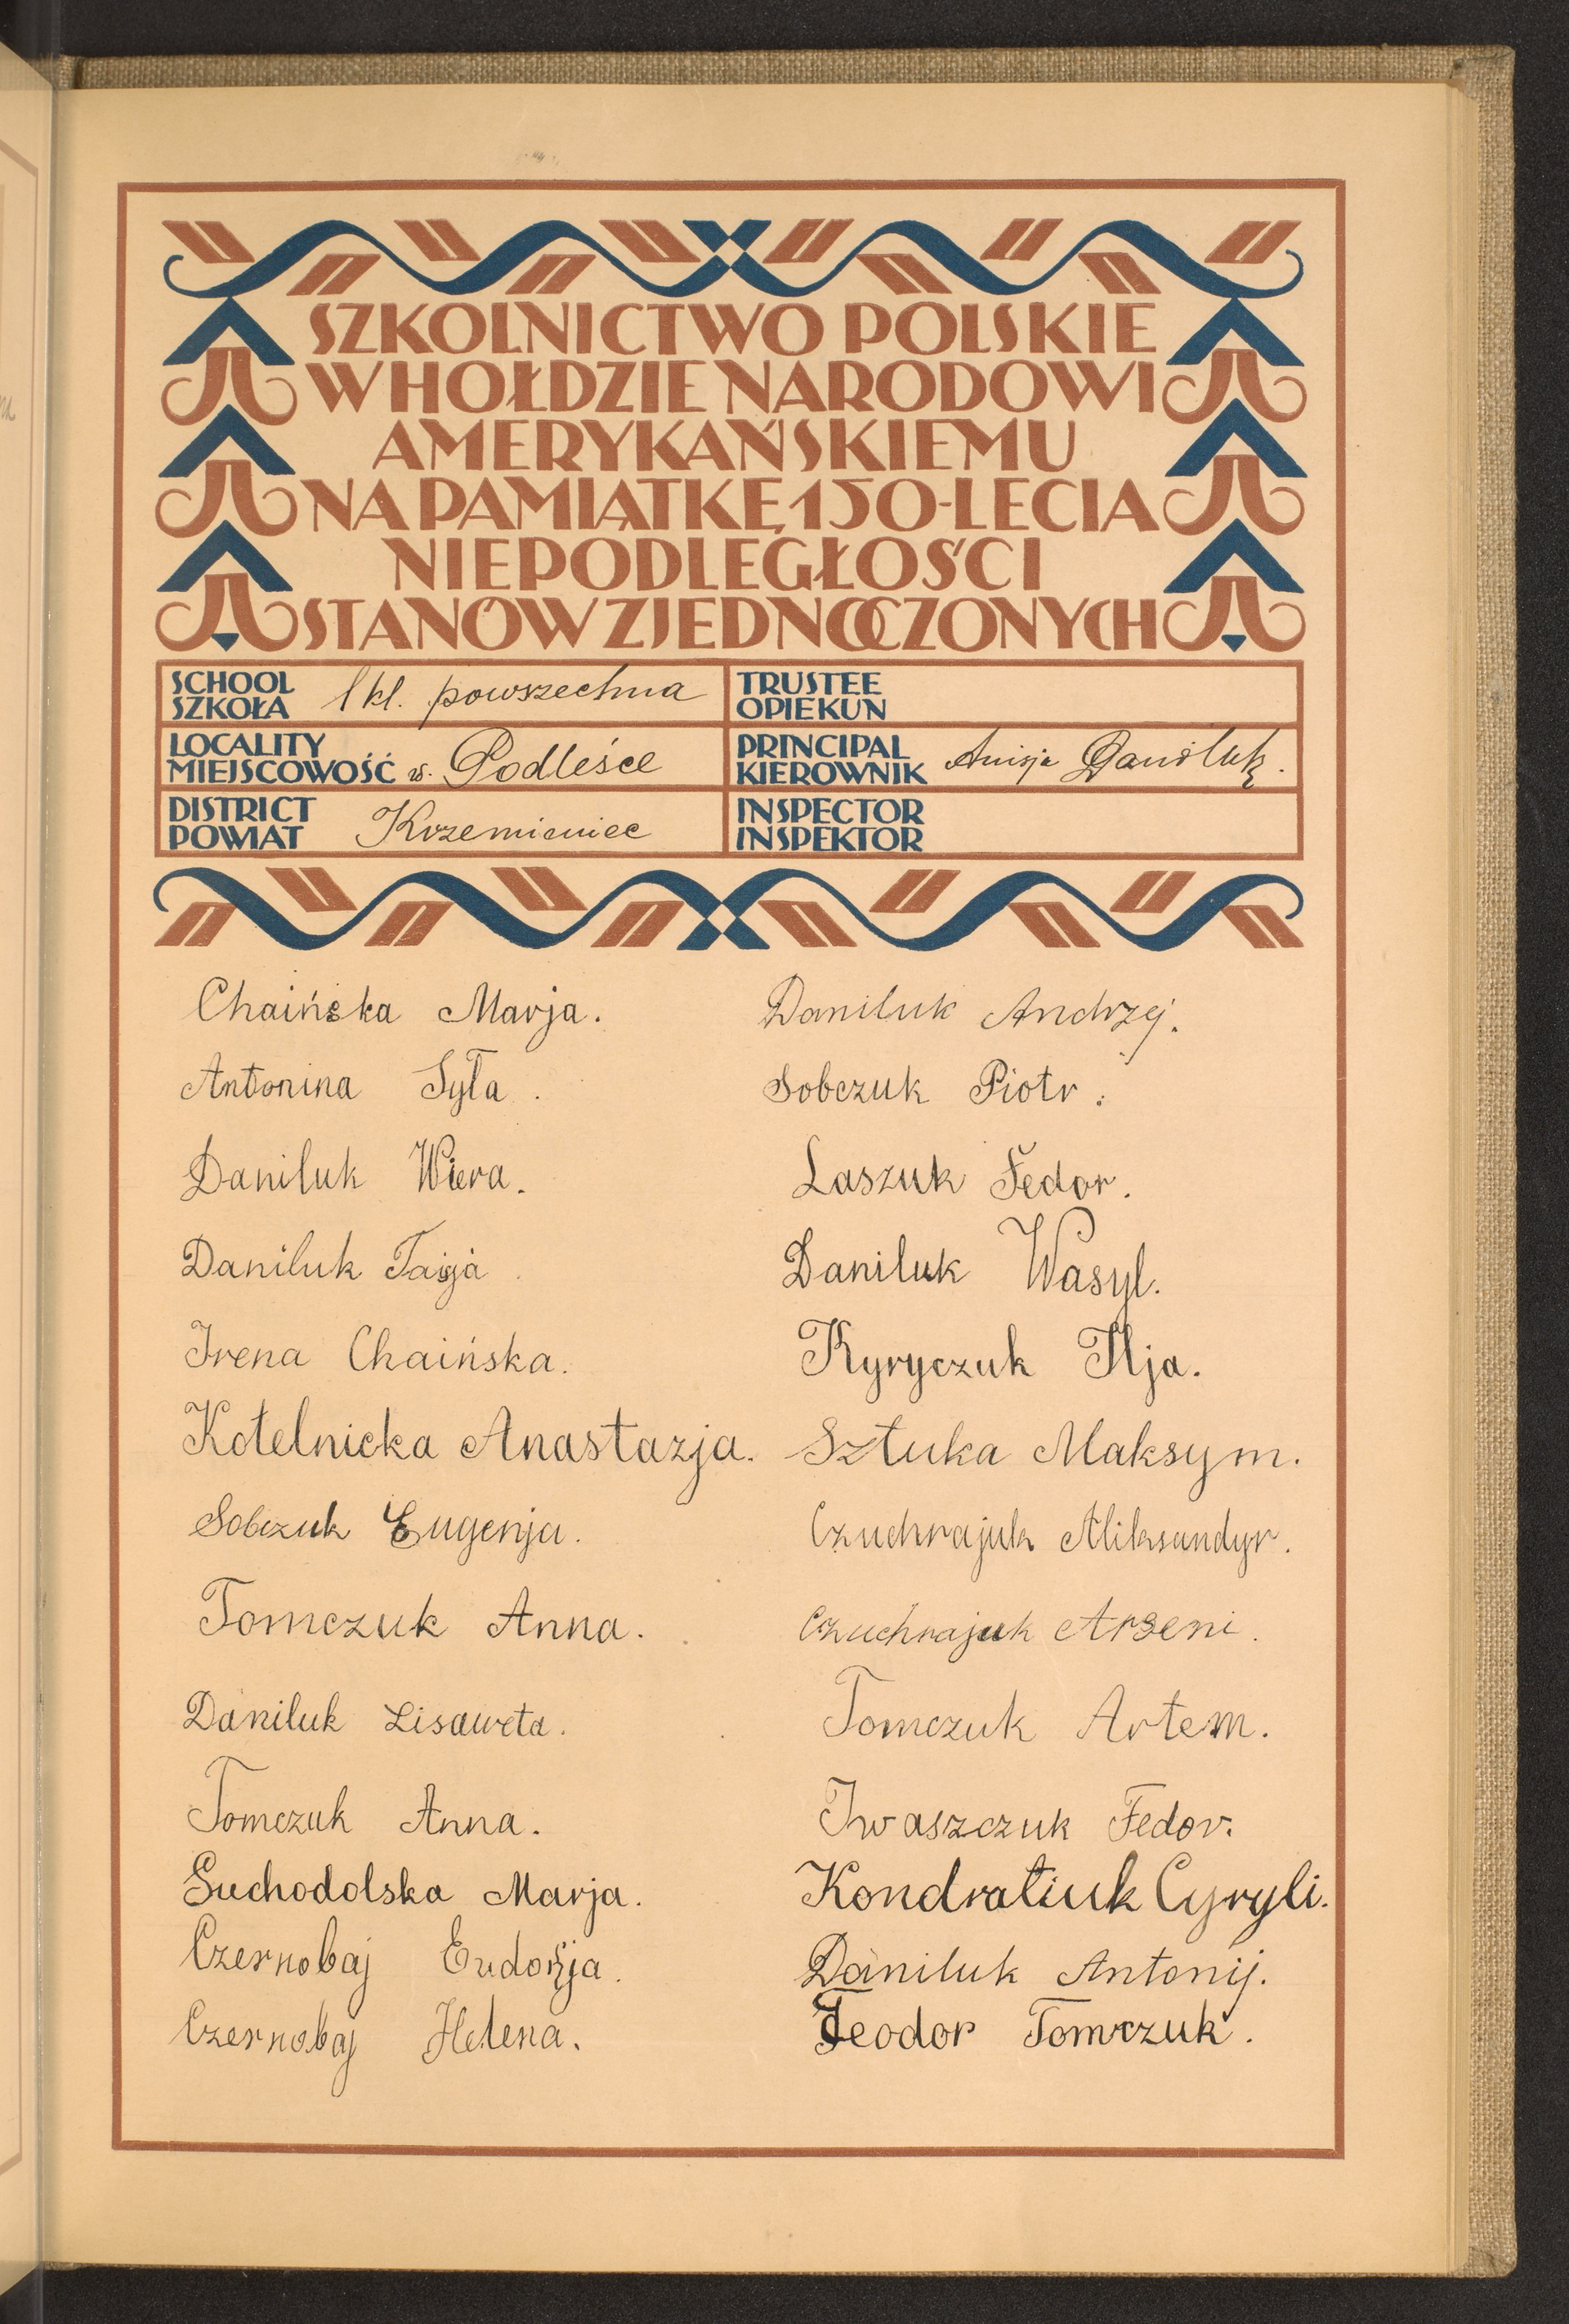 SZKOLNICTWO POLSKIE
W HOŁDZIE NARODOWI
AMERYKAŃSKIEMU
NA PAMIĄTKĘ 150-LECIA
NIEPODLEGŁOŚCI
STANÓW ZJEDNOCZONYCH
SCHOOL
SZKOŁA
1 kl. powszechna
TRUSTEE
OPIEKUN
LOCALITY
MIEJSCOWOŚĆ
w. Podleśce
PRINCIPAL
KIEROWNIK
Anisja Daniluk.
DISTRICT
POWIAT
Krzemieniec
INSPECTOR
INSPEKTOR
Chaińska Marja.
Antonina Syta.
Daniluk Wiera.
Daniluk Taisja.
Irena Chaińska.
Kotelnicka Anastazja.
Sobczuk Eugenja.
Tomczuk Anna.
Daniluk Lisaweta.
Tomczuk Anna.
Suchodolska Marja.
Czernobaj Eudokja.
Czernobaj Helena.
Daniluk Andrzej.
Sobczuk Piotr.
Laszuk Fedor.
Daniluk Wasyl.
Kyryczuk Ilja.
Sztuka Maksym.
Czuchrajuk Aliksandyr.
Czuchrajuk Arseni.
Tomczuk Artem.
Iwaszczuk Fedor.
Kondratiuk Cyryli.
Daniluk Antonij.
Feodor Tomczuk.